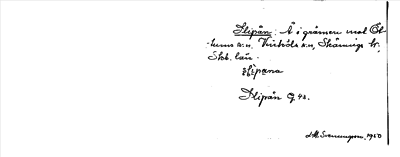 Slipån: Å i gränsen mot Öt-
tums sn. Vinköls sn, Skånings hd.
Skb. län.
slipana
Slipån G 48.
J.M. Svennungsson, 1950